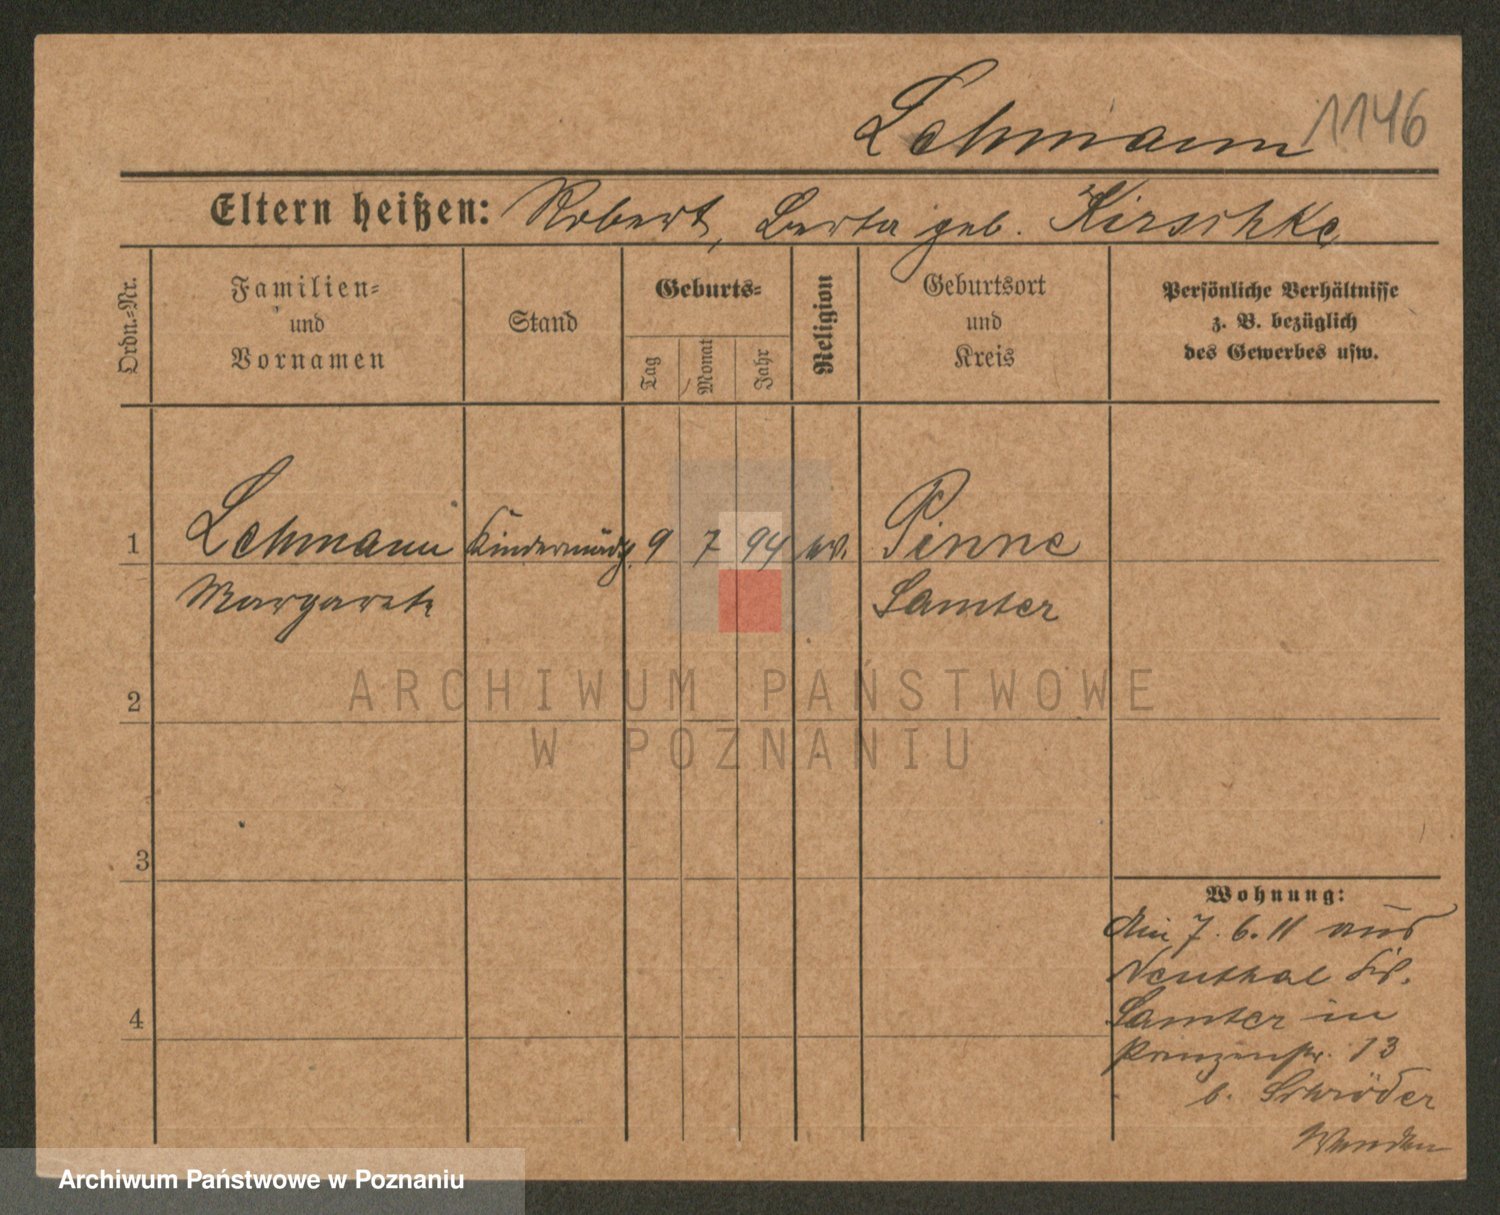 Lehmann 1146
Eltern heißen: Robert, Berta geb. Kirschke
Ordn.-Nr.
Familien-
und
Vornamen
Stand
Geburts-
Tag
Monat
Jahr
Religion
Geburtsort
und
Kreis
Persönliche Verhältnisse
z. B. bezüglich
des Gewerbes usw.
1 Lehmann Kindermädch. 9 7 94 ev. Pinne
Margarete Samter
2
3
4
Wohnung:
Am 7. 6. 11 aus
Neuthal Kr.
Samter in
Prinzenstr. 13
b. Schröder
Wenden
ARCHIWUM PAŃSTWOWE
W POZNANIU
Archiwum Państwowe w Poznaniu